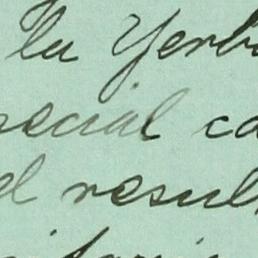 la Yerb
ecial ca
el resul